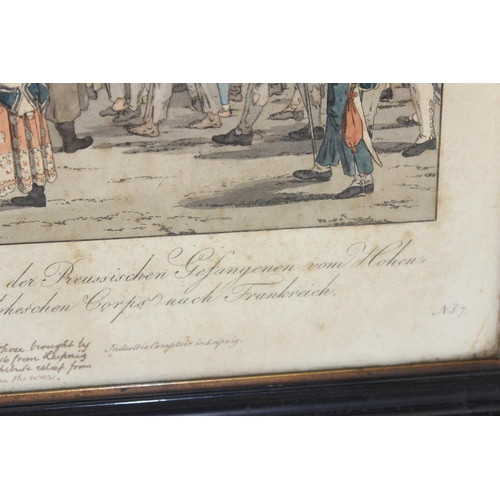 der Preussischen Gefangenen vom Hohen-
heschen Corps nach Frankreich.
No 7.
those brought by
from Leipzig
relief from
the war.
Industrie Comptoir in Leipzig.